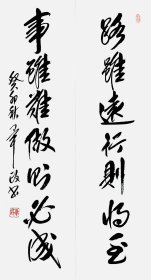 路虽远行则将至
事虽难做则必成
癸卯秋